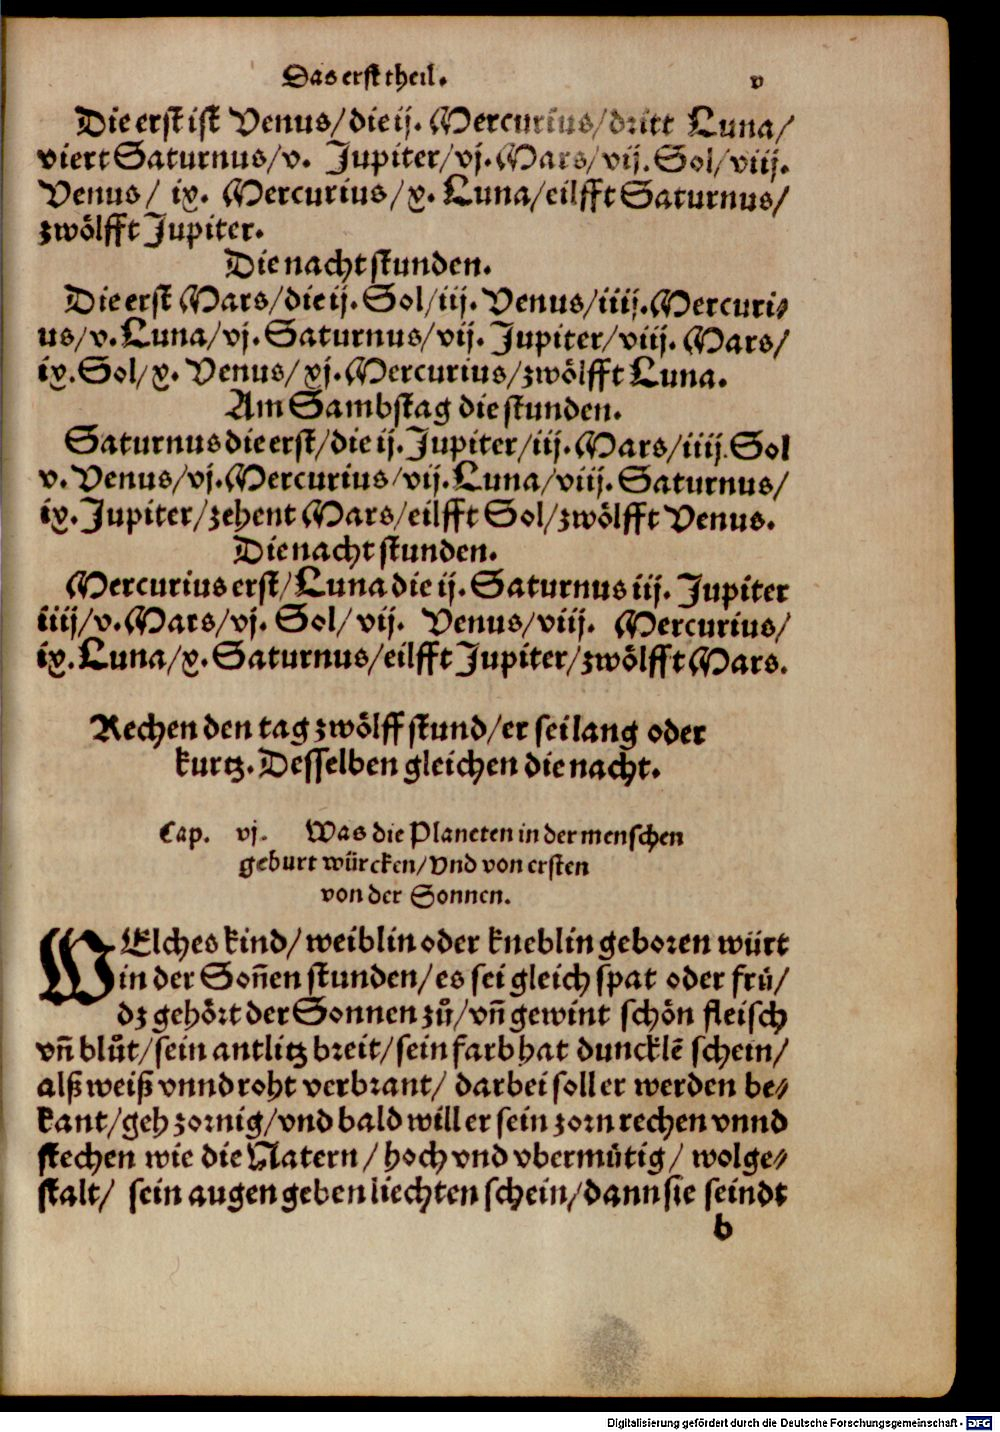 Das erst theil. v
Die erst ist Venus/ die ij. Mercurius/ dritt Luna/
viert Saturnus/ v. Jupiter/ vj. Mars/ vij. Sol/ viij.
Venus/ ix. Mercurius/ x. Luna/ eilfft Saturnus/
zwölfft Jupiter.
Die nacht stunden.
Die erst Mars/ die ij. Sol/ iij. Venus/ iiij. Mercuri⸗
us/ v. Luna/ vj. Saturnus/ vij. Jupiter/ viij. Mars/
ix. Sol/ x. Venus/ xj. Mercurius/ zwölfft Luna.
Am Sambstag die stunden.
Saturnus die erst/ die ij. Jupiter/ iij. Mars/ iiij. Sol
v. Venus/ vj. Mercurius/ vij. Luna/ viij. Saturnus/
ix. Jupiter/ zehent Mars/ eilfft Sol/ zwölfft Venus.
Die nacht stunden.
Mercurius erst/ Luna die ij. Saturnus iij. Jupiter
iiij/ v. Mars/ vj. Sol/ vij. Venus/ viij. Mercurius/
ix. Luna/ x. Saturnus/ eilfft Jupiter/ zwölfft Mars.
Rechen den tag zwölff stund/ er sei lang oder
kurtz. Desselben gleichen die nacht.
Cap. vj. Was die Planeten in der menschen
geburt würcken/ vnd von ersten
von der Sonnen.
WElches kind/ weiblin oder kneblin geboren würt
in der Soñen stunden/ es sei gleich spat oder frů/
dz gehört der Sonnen zů/ vñ gewint schön fleisch
vñ blůt/ sein antlitz breit/ sein farb hat duncklẽ schein/
alß weiß vnnd roht verbrant/ darbei soll er werden be⸗
kant/ geh zornig/ vnd bald will er sein zorn rechen vnnd
stechen wie die Natern/ hoch vnd vbermütig/ wolge⸗
stalt/ sein augen geben liechten schein/ dann sie seindt
b
Digitalisierung gefördert durch die Deutsche Forschungsgemeinschaft - DFG